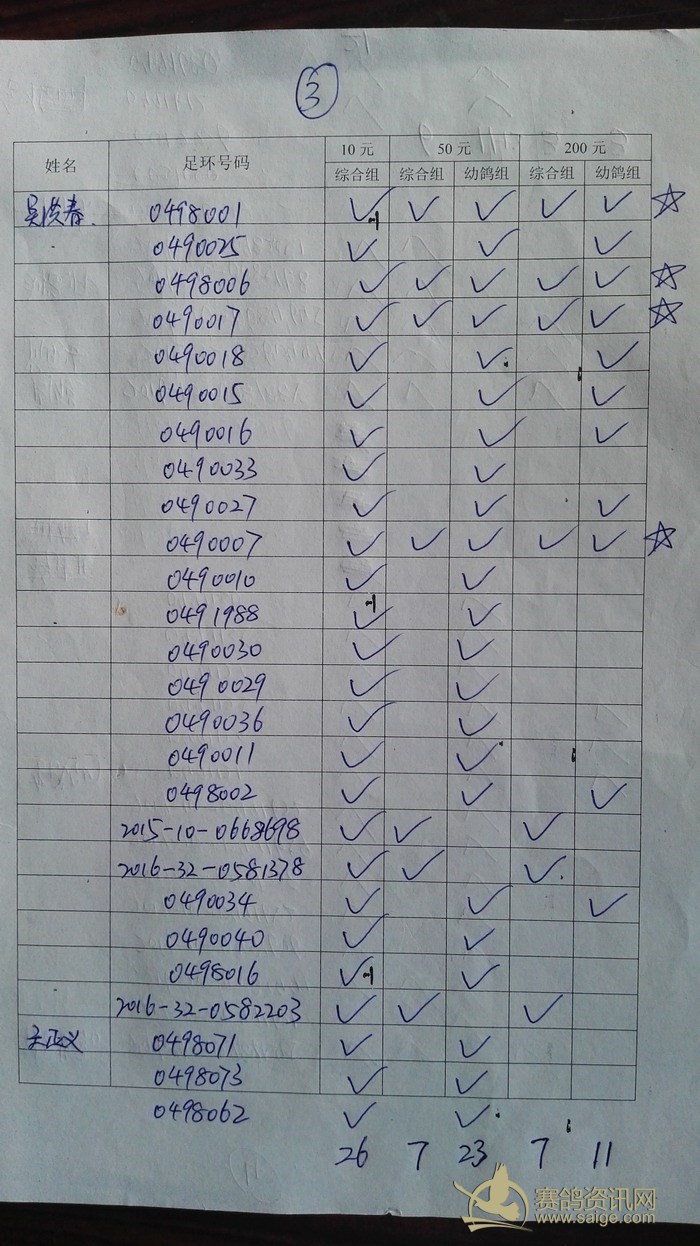 ③
姓名 足环号码 10 元 50 元 200 元
综合组 综合组 幼鸽组 综合组 幼鸽组
吴洪春 0498001 ✓ ✓ ✓ ✓ ✓ ☆
0490025 ✓ ✓ ✓
0498006 ✓ ✓ ✓ ✓ ✓ ☆
0490017 ✓ ✓ ✓ ✓ ✓ ☆
0490018 ✓ ✓ ✓
0490015 ✓ ✓ ✓
0490016 ✓ ✓ ✓
0490033 ✓ ✓
0490027 ✓ ✓ ✓
0490007 ✓ ✓ ✓ ✓ ✓ ☆
0490010 ✓ ✓
0491988 ✓ ✓
0490030 ✓ ✓
0490029 ✓ ✓
0490036 ✓ ✓
0490011 ✓ ✓
0498002 ✓ ✓ ✓
2015-10-0668698 ✓ ✓ ✓
2016-32-0581378 ✓ ✓ ✓
0490034 ✓ ✓ ✓
0490040 ✓ ✓
0498016 ✓ ✓
2016-32-0582203 ✓ ✓ ✓
王正义 0498071 ✓ ✓
0498073 ✓ ✓
0498062 ✓ ✓
26 7 23 7 11
赛鸽资讯网
www.saige.com